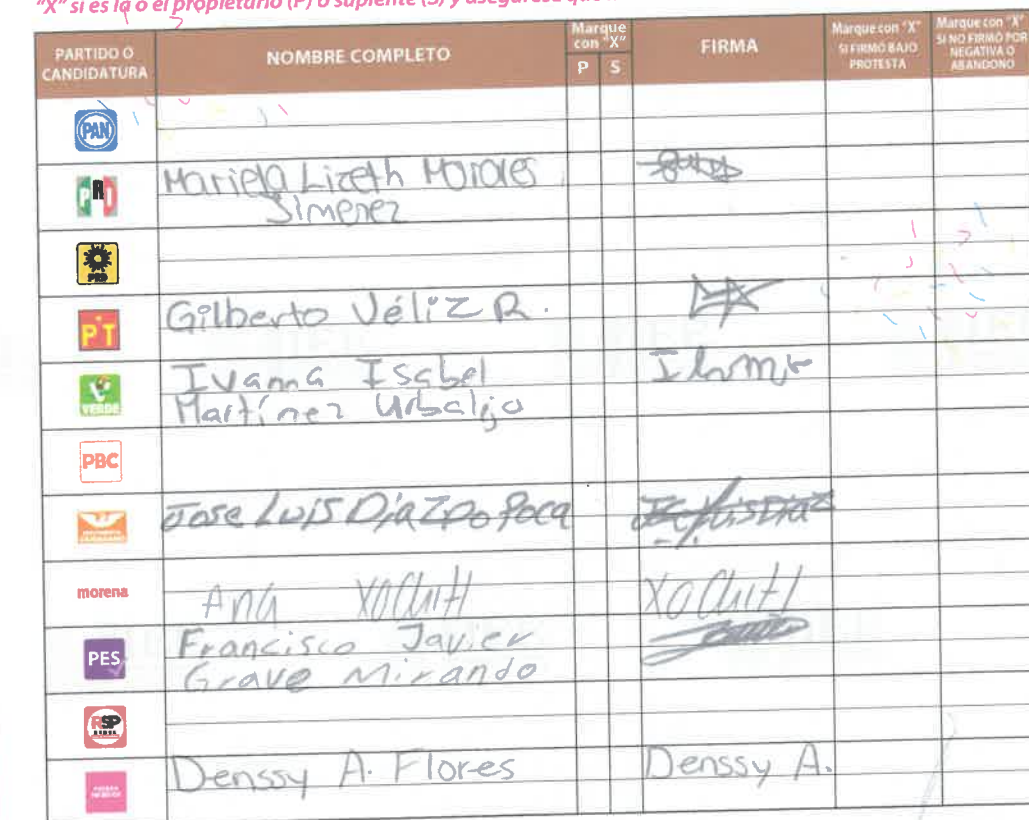 "X" si es la o el propietario (P) o suplente (S) y asegúrese que
PARTIDO O CANDIDATURA
NOMBRE COMPLETO
Marque con "X"
P S
FIRMA
Marque con "X" SI FIRMÓ BAJO PROTESTA
Marque con "X" SI NO FIRMÓ POR NEGATIVA O ABANDONO
PAN
PRI
Mariela Lizeth Morales
Jimenez
PRD
PT
Gilberto Véliz R.
VERDE
Ivanna Isabel
Martínez Urbalijo
PBC
Jose Luis Díaz Popoca
morena
Ana Xochitl
Xochitl
PES
Francisco Javier
Grave Mirando
RSP
Denssy A. Flores
Denssy A.